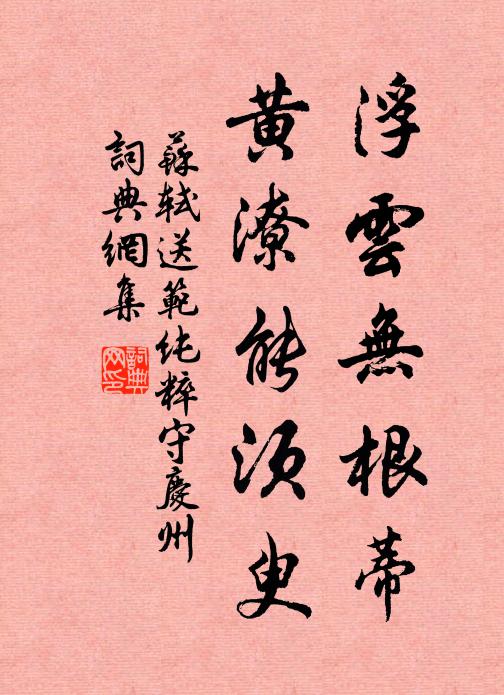 浮雲無根蒂
黃潦能須臾
蘇軾送範純粹守慶州
詞典網集
詞典网印